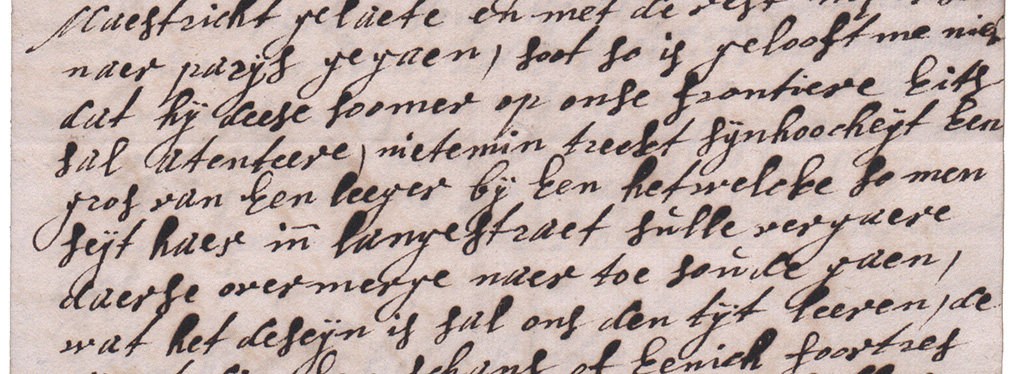 Maestricht gelaete en met de rest
naer parijs gegaen, soot so is gelooft me niet
dat hij deese soomer op onse frontiere iets
sal atenteere, nietemin treckt sijnhoocheijt Een
gros van Een leeger bij Een hetwelcke so men
seijt haer inn langestraet sulle vergaere
daerse overmerge naer toe soude gaen,
wat het deseijn is sal ons den tijt leeren, de
schans of Eenich foortres